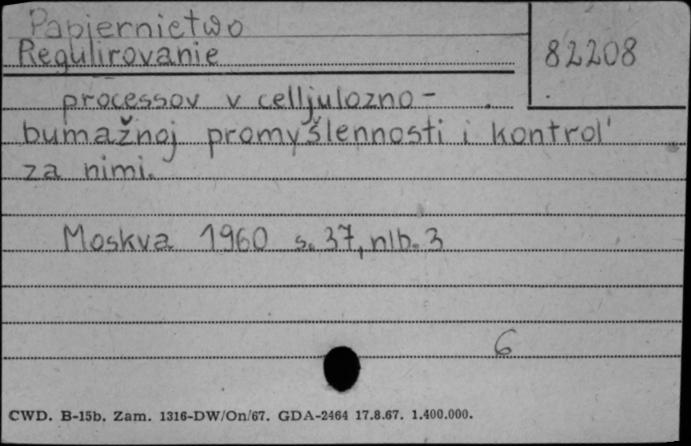 Papiernictwo
Regulirovanie
82208
processov v celljulozno-
bumažnoj promyšlennosti i kontrol'
za nimi.
Moskva 1960 s. 37, nlb. 3
6
CWD. B-15b. Zam. 1316-DW/On/67. GDA-2464 17.8.67. 1.400.000.